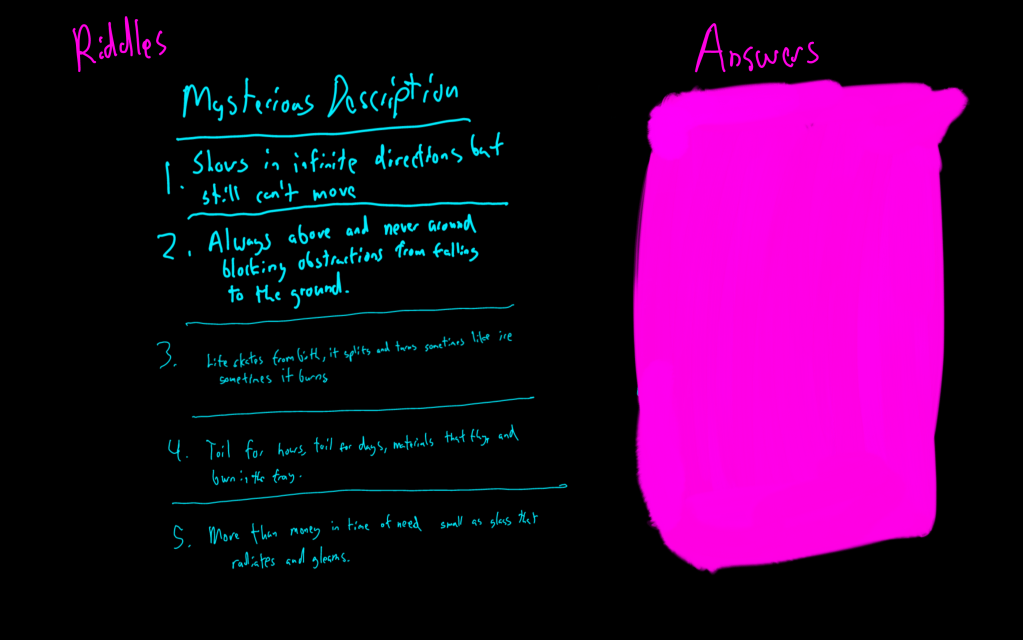 Riddles
Answers
Mysterious Description
1. Shows in infinite directions but
still can't move
2. Always above and never around
blocking obstractions from falling
to the ground.
3. Life skates from birth, it splits and turns sometimes like ice
sometimes it burns
4. Toil for hours, toil for days, materials that fly, and
burn in the fray.
5. More than money in time of need small as glass that
radiates and gleams.